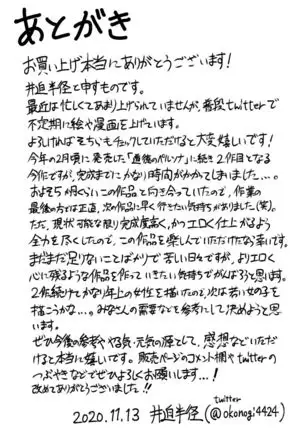 あとがき
お買い上げ本当にありがとうございます!
井迫半径と申すものです。
最近は忙しくてあまり上げられていませんが、普段twitterで
不定期に絵や漫画を上げています。
よろしければそちらもチェックしていただけると大変嬉しいです!
今年の2月頃に発売した「直後のパルソナ」に続き2作目となる
今作ですが、完成までにかなり時間がかかてしまいました…。
およそ5か月くらいこの作品と向き合っていたので、作業の
最後の方では正直、次の作品に早く行きたい気持ちがありました(笑)。
ただ、現状可能な限り完成度高く、かつエロく仕上がるよう
全力を尽くしたので、この作品を楽しんでいただけたなら幸いです。
まだまだ足りないことばかりで苦しい日々ですが、よりエロく
心に残るような作品を作っていきたい気持ちでがんばろうと思います。
2作続けてかなり年上の女性を描いたので、次は若い女の子を
描こうかな…。みなさんの需要なども参考にして決めようと思
います。
ぜひ今後の参考ややる気・元気の源として、感想などいただ
けると本当に嬉しいです。販売ページのコメント欄やtwitterの
つぶやきなどでぜひよろしくお願いします…!
改めてありがとうございました!!
twitter
2020.11.13 井迫半径(@okonogi4424)